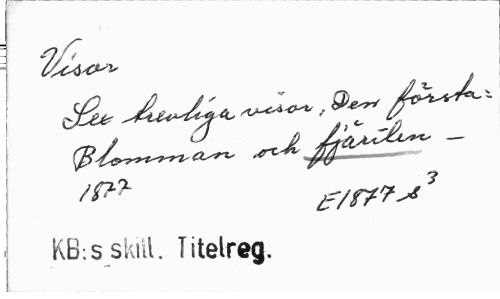 Visor
Sex trevliga visor, Den första=
Blomman och fjärilen —
1877
E1877 s³
KB:s skill. Titelreg.